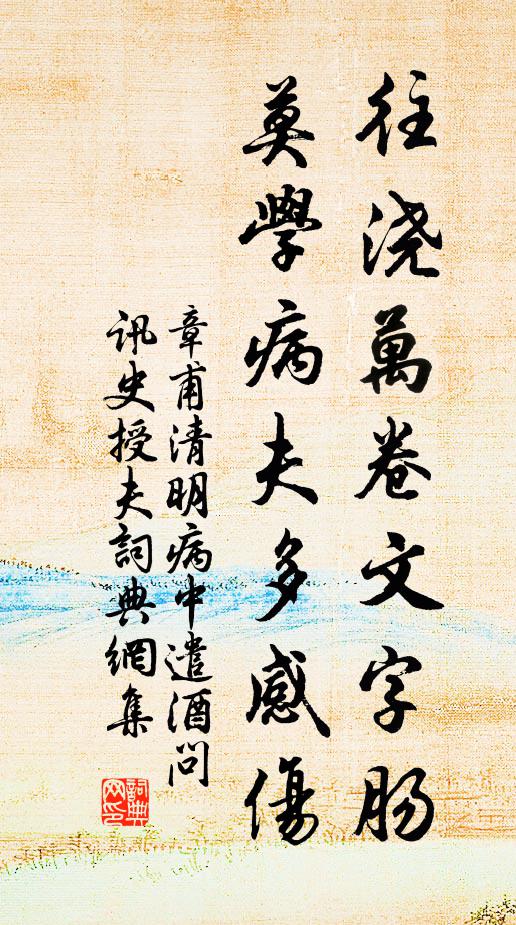 往浇萬卷文字肠
莫學病夫多感傷
章甫清明病中遣酒問
訊史授夫詞典網集
詞典
网印